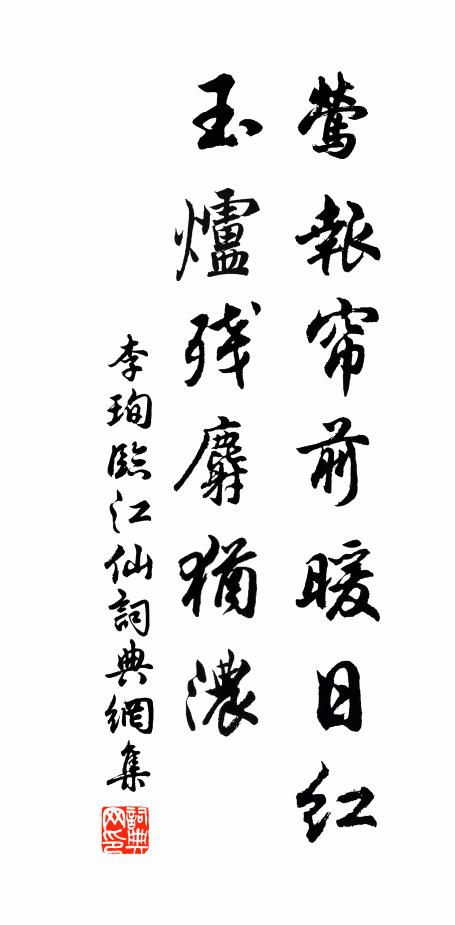 莺報帘前暖日红
玉爐残麝猶濃
李珣臨江仙詞典網集
詞典网印